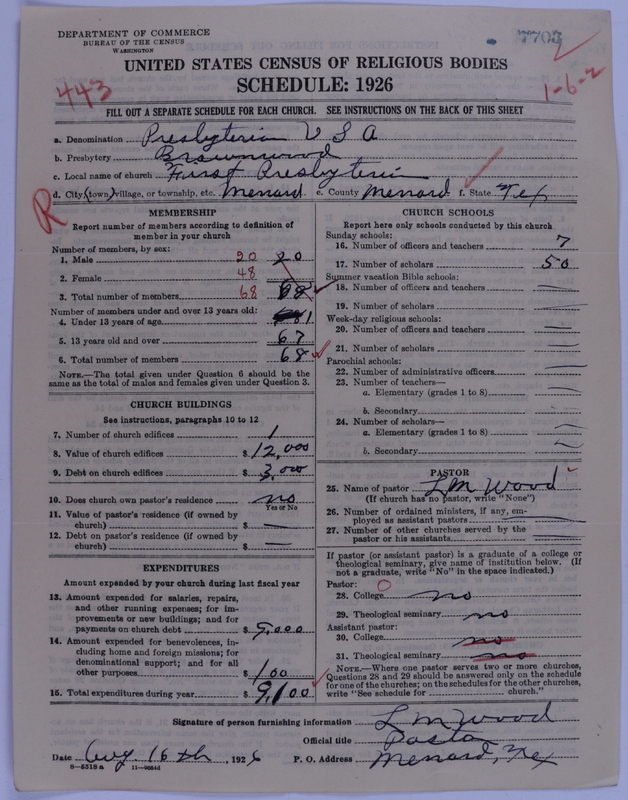 DEPARTMENT OF COMMERCE
BUREAU OF THE CENSUS
WASHINGTON
7703
UNITED STATES CENSUS OF RELIGIOUS BODIES
SCHEDULE: 1926
443
1-6-2
FILL OUT A SEPARATE SCHEDULE FOR EACH CHURCH. SEE INSTRUCTIONS ON THE BACK OF THIS SHEET
a. Denomination Presbyterian U S A
b. Presbytery Brownwood
c. Local name of church First Presbyterian
d. City (town) village, or township, etc. Menard e. County Menard f. State Tex
R
MEMBERSHIP
Report number of members according to definition of
member in your church
Number of members, by sex:
1. Male 20 20
2. Female 48
3. Total number of members 68 68
Number of members under and over 13 years old:
4. Under 13 years of age 1
5. 13 years old and over 67
6. Total number of members 68
NOTE.—The total given under Question 6 should be
same as the total of males and females given under Question 3.
CHURCH BUILDINGS
See instructions, paragraphs 10 to 12
7. Number of church edifices 1
8. Value of church edifices $ 12,000
9. Debt on church edifices $ 3,000
10. Does church own pastor's residence no
Yes or No
11. Value of pastor's residence (if owned by
church) $ —
12. Debt on pastor's residence (if owned by
church) $ —
EXPENDITURES
Amount expended by your church during last fiscal year
13. Amount expended for salaries, repairs,
and other running expenses; for im-
provements or new buildings; and for
payments on church debt $ 9,000
14. Amount expended for benevolences, in-
cluding home and foreign missions; for
denominational support; and for all
other purposes $ 100
15. Total expenditures during year $ 9,100
CHURCH SCHOOLS
Report here only schools conducted by this church
Sunday schools:
16. Number of officers and teachers 7
17. Number of scholars 50
Summer vacation Bible schools:
18. Number of officers and teachers —
19. Number of scholars —
Week-day religious schools:
20. Number of officers and teachers —
21. Number of scholars —
Parochial schools:
22. Number of administrative officers —
23. Number of teachers—
a. Elementary (grades 1 to 8) —
b. Secondary —
24. Number of scholars—
a. Elementary (grades 1 to 8) —
b. Secondary —
PASTOR
25. Name of pastor L M Wood
(If church has no pastor, write "None")
26. Number of ordained ministers, if any, em-
ployed as assistant pastors —
27. Number of other churches served by the
pastor or his assistants —
If pastor (or assistant pastor) is a graduate of a college or
theological seminary, give name of institution below. (If
not a graduate, write "No" in the space indicated.)
Pastor: O
28. College no
29. Theological seminary no
Assistant pastor:
30. College no
31. Theological seminary no
NOTE.—Where one pastor serves two or more churches,
Questions 28 and 29 should be answered only on the schedule
for one of the churches; on the schedules for the other churches,
write "See schedule for church."
Signature of person furnishing information L M Wood
Official title Pastor
Date Aug. 16th, 1926 P. O. Address Menard, Tex
8—5518 a 11—9884d